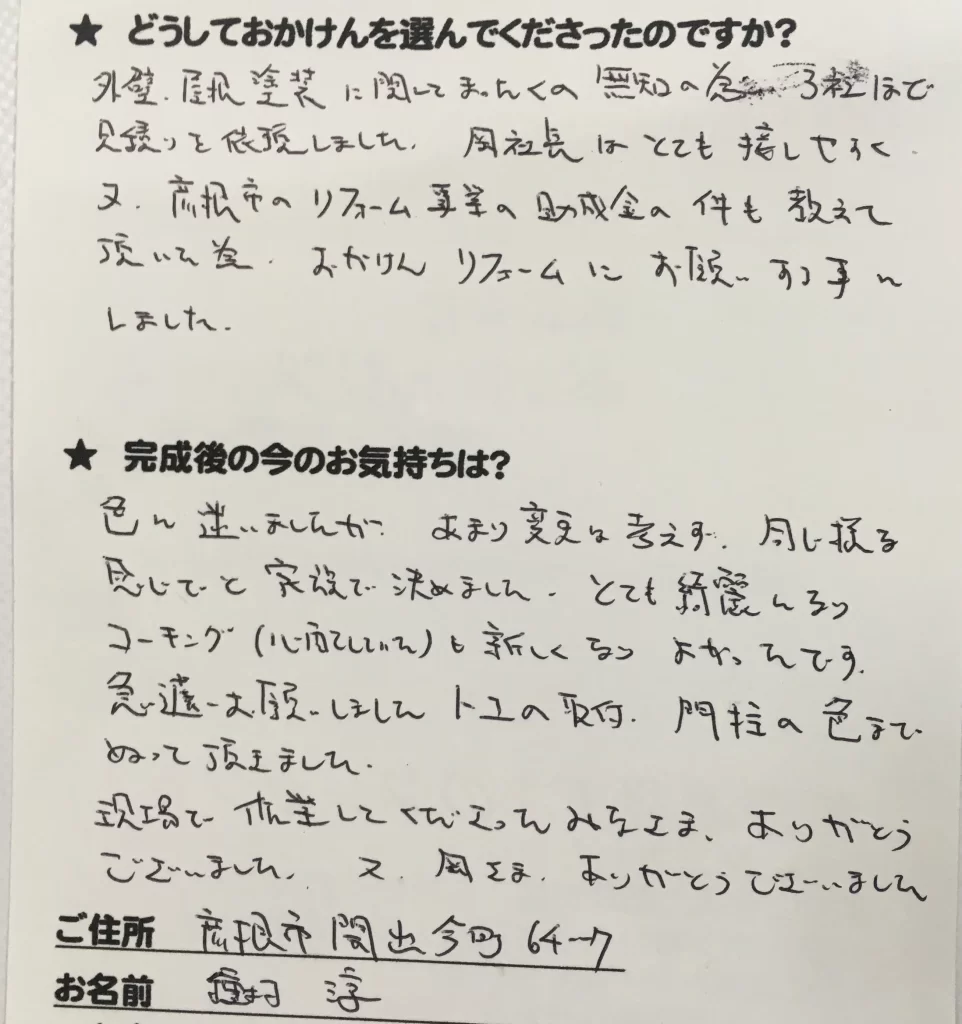 ★ どうしておかけんを選んでくださったのですか？
外壁.屋根塗装に関してまったくの無知の為 3社ほど
見積りを依頼しました. 岡社長はとても接しやすく.
又.彦根市のリフォーム事業の助成金の件も教えて
頂いた為.おかけんリフォームにお願いする事に
しました.
★ 完成後の今のお気持ちは？
色に迷いましたが.あまり変更は考えず.同じ様な
感じでと家族で決めました.とても綺麗になり
コーキング(心配していた)も新しくなりよかったです.
急遽お願いしましたトユの取付.門柱の色まで
ぬって頂きました.
現場で作業してくださったみなさま、ありがとう
ございました. 又.岡さま.ありがとうございました
ご住所 彦根市開出今町 64-7
お名前 種村 淳